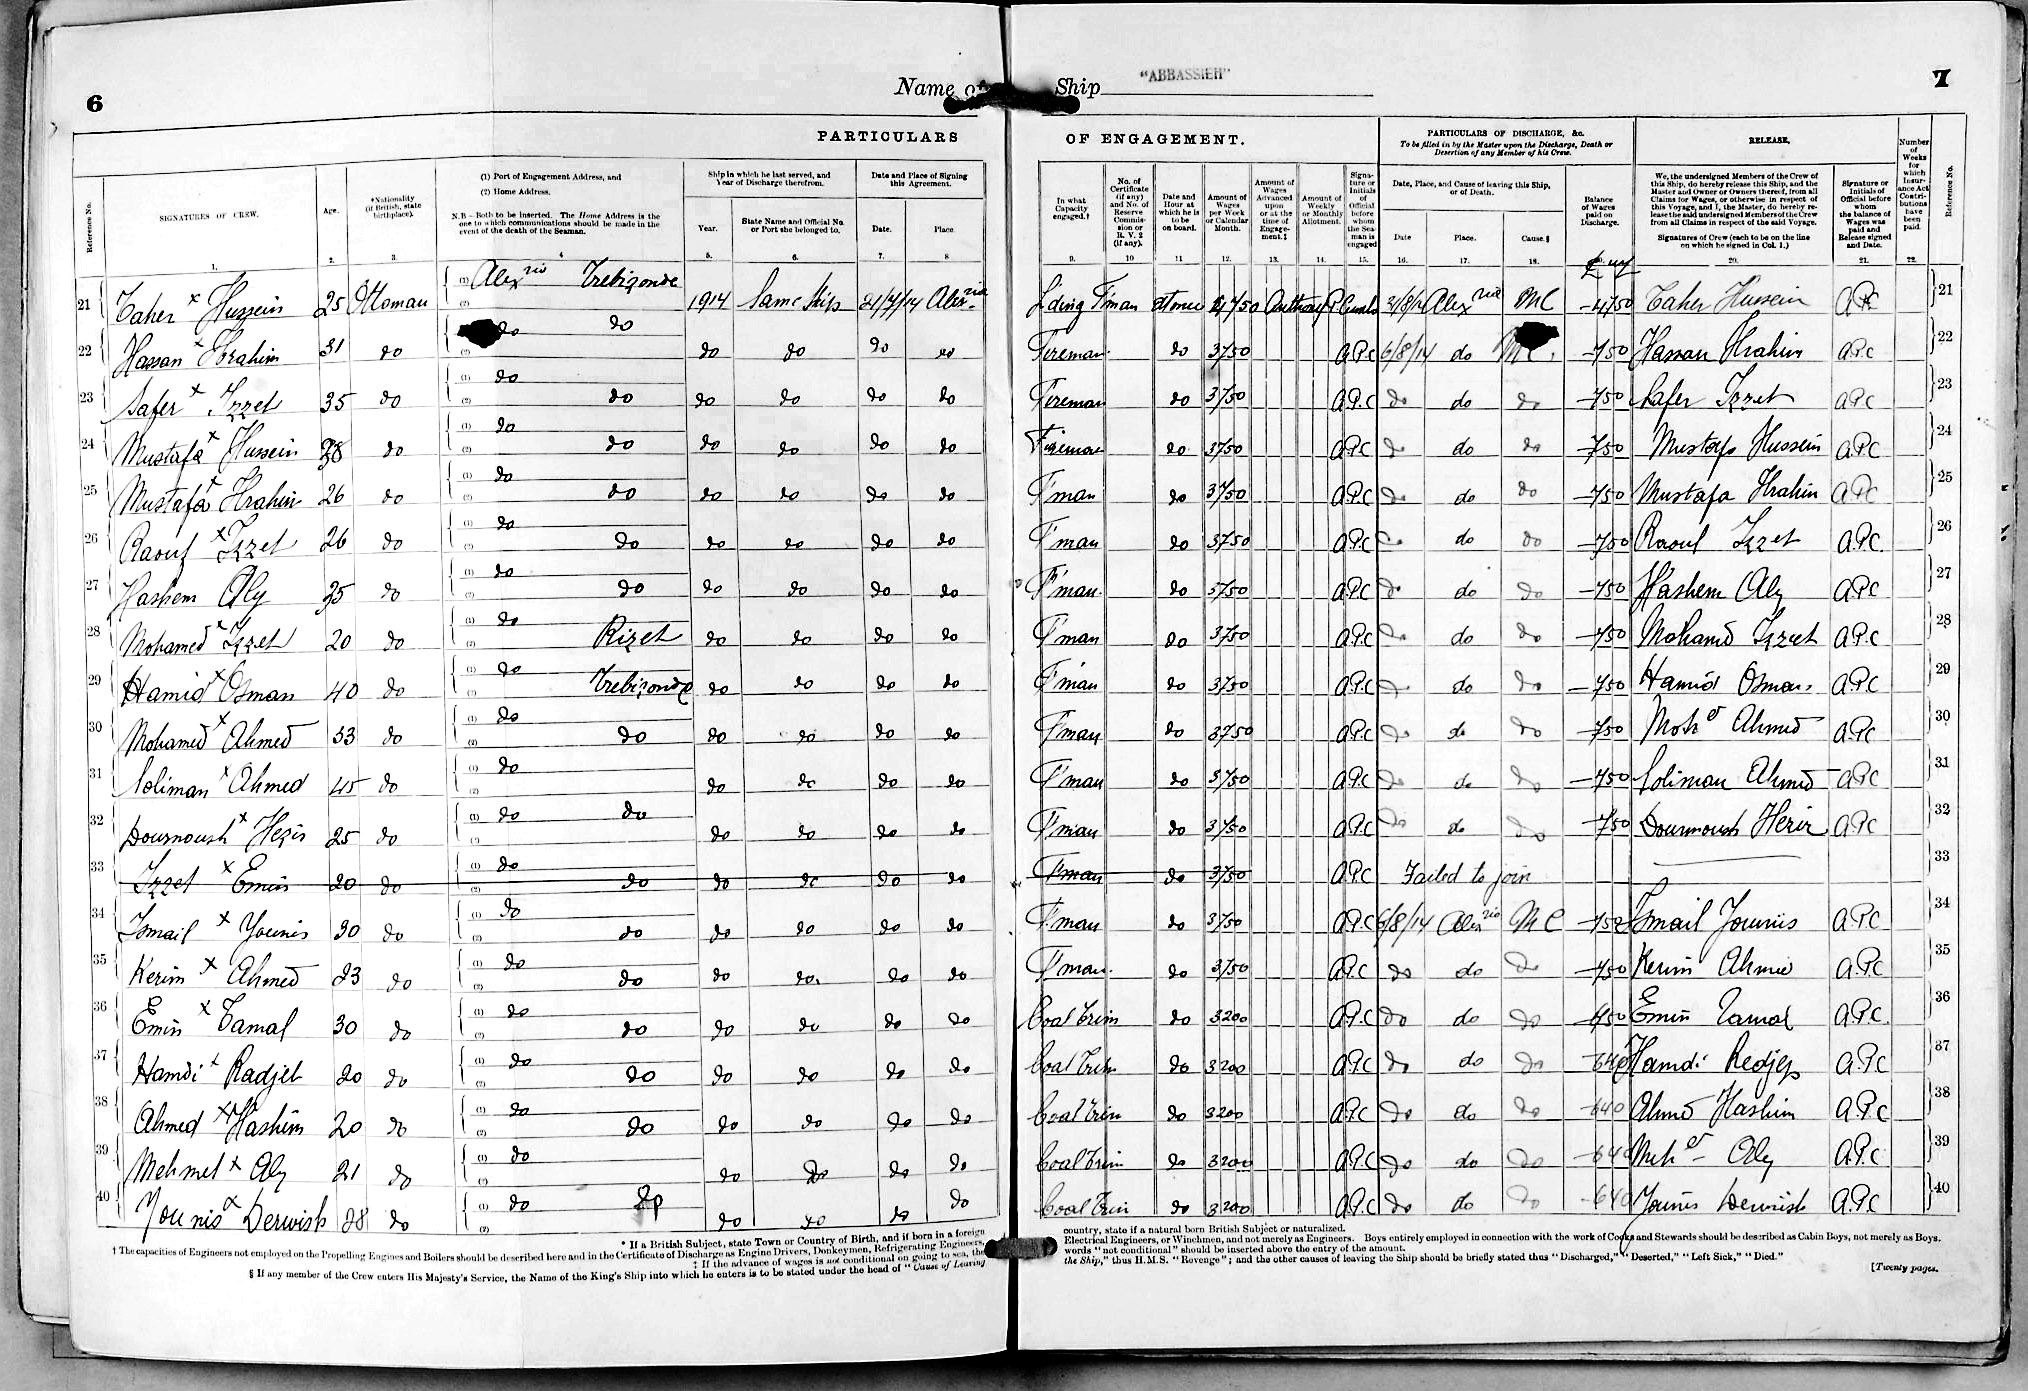 6
Name of Ship "ABBASSIEH"
7
PARTICULARS OF ENGAGEMENT.
PARTICULARS OF DISCHARGE, &c.
To be filled in by the Master upon the Discharge, Death or Desertion of any Member of his Crew.
RELEASE.
Reference No.
SIGNATURES OF CREW.
Age.
*Nationality (if British, state birthplace).
(1) Port of Engagement Address, and
(2) Home Address.
N.B.—Both to be inserted. The Home Address is the one to which communications should be made in the event of the death of the Seaman.
Ship in which he last served, and Year of Discharge therefrom.
Year.
State Name and Official No. or Port she belonged to.
Date and Place of Signing this Agreement.
Date.
Place.
In what Capacity engaged.†
No. of Certificate (if any) and No. of Reserve Commission or R. V. 2 (if any).
Date and Hour at which he is to be on board.
Amount of Wages per Week or Calendar Month.
Amount of Wages Advanced upon or at the time of Engagement.‡
Amount of Weekly or Monthly Allotment.
Signature or Initials of Official before whom the Seaman is engaged
Date, Place, and Cause of leaving this Ship, or of Death.
Date
Place.
Cause.§
Balance of Wages paid on Discharge.
We, the undersigned Members of the Crew of this Ship, do hereby release this Ship, and the Master and Owner or Owners thereof, from all Claims for Wages, or otherwise in respect of this Voyage, and I, the Master, do hereby release the said undersigned Members of the Crew from all Claims in respect of the said Voyage.
Signatures of Crew (each to be on the line on which he signed in Col. 1.)
Signature or Initials of Official before whom the balance of Wages was paid and Release signed and Date.
Number of Weeks for which Insurance Act Contributions have been paid.
Reference No.
1. 2. 3. 4 5. 6. 7. 8 9. 10 11. 12. 13. 14. 15. 16. 17. 18. 20. 21. 22.
21 Taher x Hussein 25 Ottoman (1) Alexria Trebizonde (2) 1914 Same Ship 21/7/14 Alexria Lding F'man at once 4750 Alexria MC 4750 Taher Hussein A.P.C 21
22 Hassan x Ibrahim 31 do (1) do do (2) do do do do Fireman do 3750 A.P.C 6/8/14 do MC. 750 Hassan Ibrahim A.P.C 22
23 Safer x Izzet 35 do (1) do (2) do do do do do Fireman do 3750 A.P.C do do do 750 Safer Izzet A.P.C 23
24 Mustafa x Hussein 38 do (1) do (2) do do do do do Fireman do 3750 A.P.C do do do 750 Mustafa Hussein A.P.C 24
25 Mustafa x Ibrahim 26 do (1) do (2) do do do do do F'man do 3750 A.P.C do do do 750 Mustafa Ibrahim A.P.C 25
26 Raouf x Izzet 26 do (1) do (2) do do do do do F'man do 3750 A.P.C do do do 750 Raouf Izzet A.P.C. 26
27 Hashem Aly 35 do (1) do (2) do do do do do F'man. do 3750 A.P.C do do do 750 Hashem Aly A.P.C 27
28 Mohamed x Izzet 20 do (1) do (2) Rizet do do do do F'man do 3750 A.P.C do do do 750 Mohamed Izzet A.P.C 28
29 Hamid x Osman 40 do (1) do (2) Trebizonde do do do do F'man do 3750 A.P.C do do do 750 Hamid Osman A.P.C 29
30 Mohamed x Ahmed 33 do (1) do (2) do do do do do F'man do 3750 A.P.C do do do 750 Mohd Ahmed A.P.C 30
31 Soliman x Ahmed 45 do (1) do (2) do do do do F'man do 3750 A.P.C do do do 750 Soliman Ahmed A.P.C 31
32 Dourmoush x Hezir 25 do (1) do do do do do do F'man do 3750 A.P.C do do do 750 Dourmoush Hezir A.P.C 32
33 Izzet x Emin 20 do (1) do (2) do do do do do F'man do 3750 A.P.C Failed to join 33
34 Ismail x Younis 30 do (1) do (2) do do do do do F'man do 3750 A.P.C 6/8/14 Alexria MC 750 Ismail Younis A.P.C 34
35 Kerim x Ahmed 23 do (1) do (2) do do do do do F'man. do 3750 A.P.C do do do 750 Kerim Ahmed A.P.C 35
36 Emin x Tamal 30 do (1) do (2) do do do do do Coal Trim do 3200 A.P.C do do do Emin Tamal A.P.C. 36
37 Hamdi x Radjeb 20 do (1) do (2) do do do do do Coal Trim do 3200 A.P.C do do do 640 Hamdi Redjep A.P.C 37
38 Ahmed x Hashim 20 do (1) do (2) do do do do do Coal Trim do 3200 A.P.C do do do 640 Ahmed Hashim A.P.C 38
39 Mehmet x Aly 21 do (1) do (2) do do do do Coal Trim do 3200 A.P.C do do do 640 Mehet Aly A.P.C 39
40 Younis x Derwish 28 do (1) do do (2) do do do do Coal Trim do 3200 A.P.C do do do 640 Younis Derwish A.P.C 40
* If a British Subject, state Town or Country of Birth, and if born in a foreign country, state if a natural born British Subject or naturalized.
† The capacities of Engineers not employed on the Propelling Engines and Boilers should be described here and in the Certificate of Discharge as Engine Drivers, Donkeymen, Refrigerating Engineers, Electrical Engineers, or Winchmen, and not merely as Engineers. Boys entirely employed in connection with the work of Cooks and Stewards should be described as Cabin Boys, not merely as Boys.
‡ If the advance of wages is not conditional on going to sea, the words "not conditional" should be inserted above the entry of the amount.
§ If any member of the Crew enters His Majesty's Service, the Name of the King's Ship into which he enters is to be stated under the head of "Cause of Leaving the Ship," thus H.M.S. "Revenge"; and the other causes of leaving the Ship should be briefly stated thus "Discharged," "Deserted," "Left Sick," "Died."
[Twenty pages.